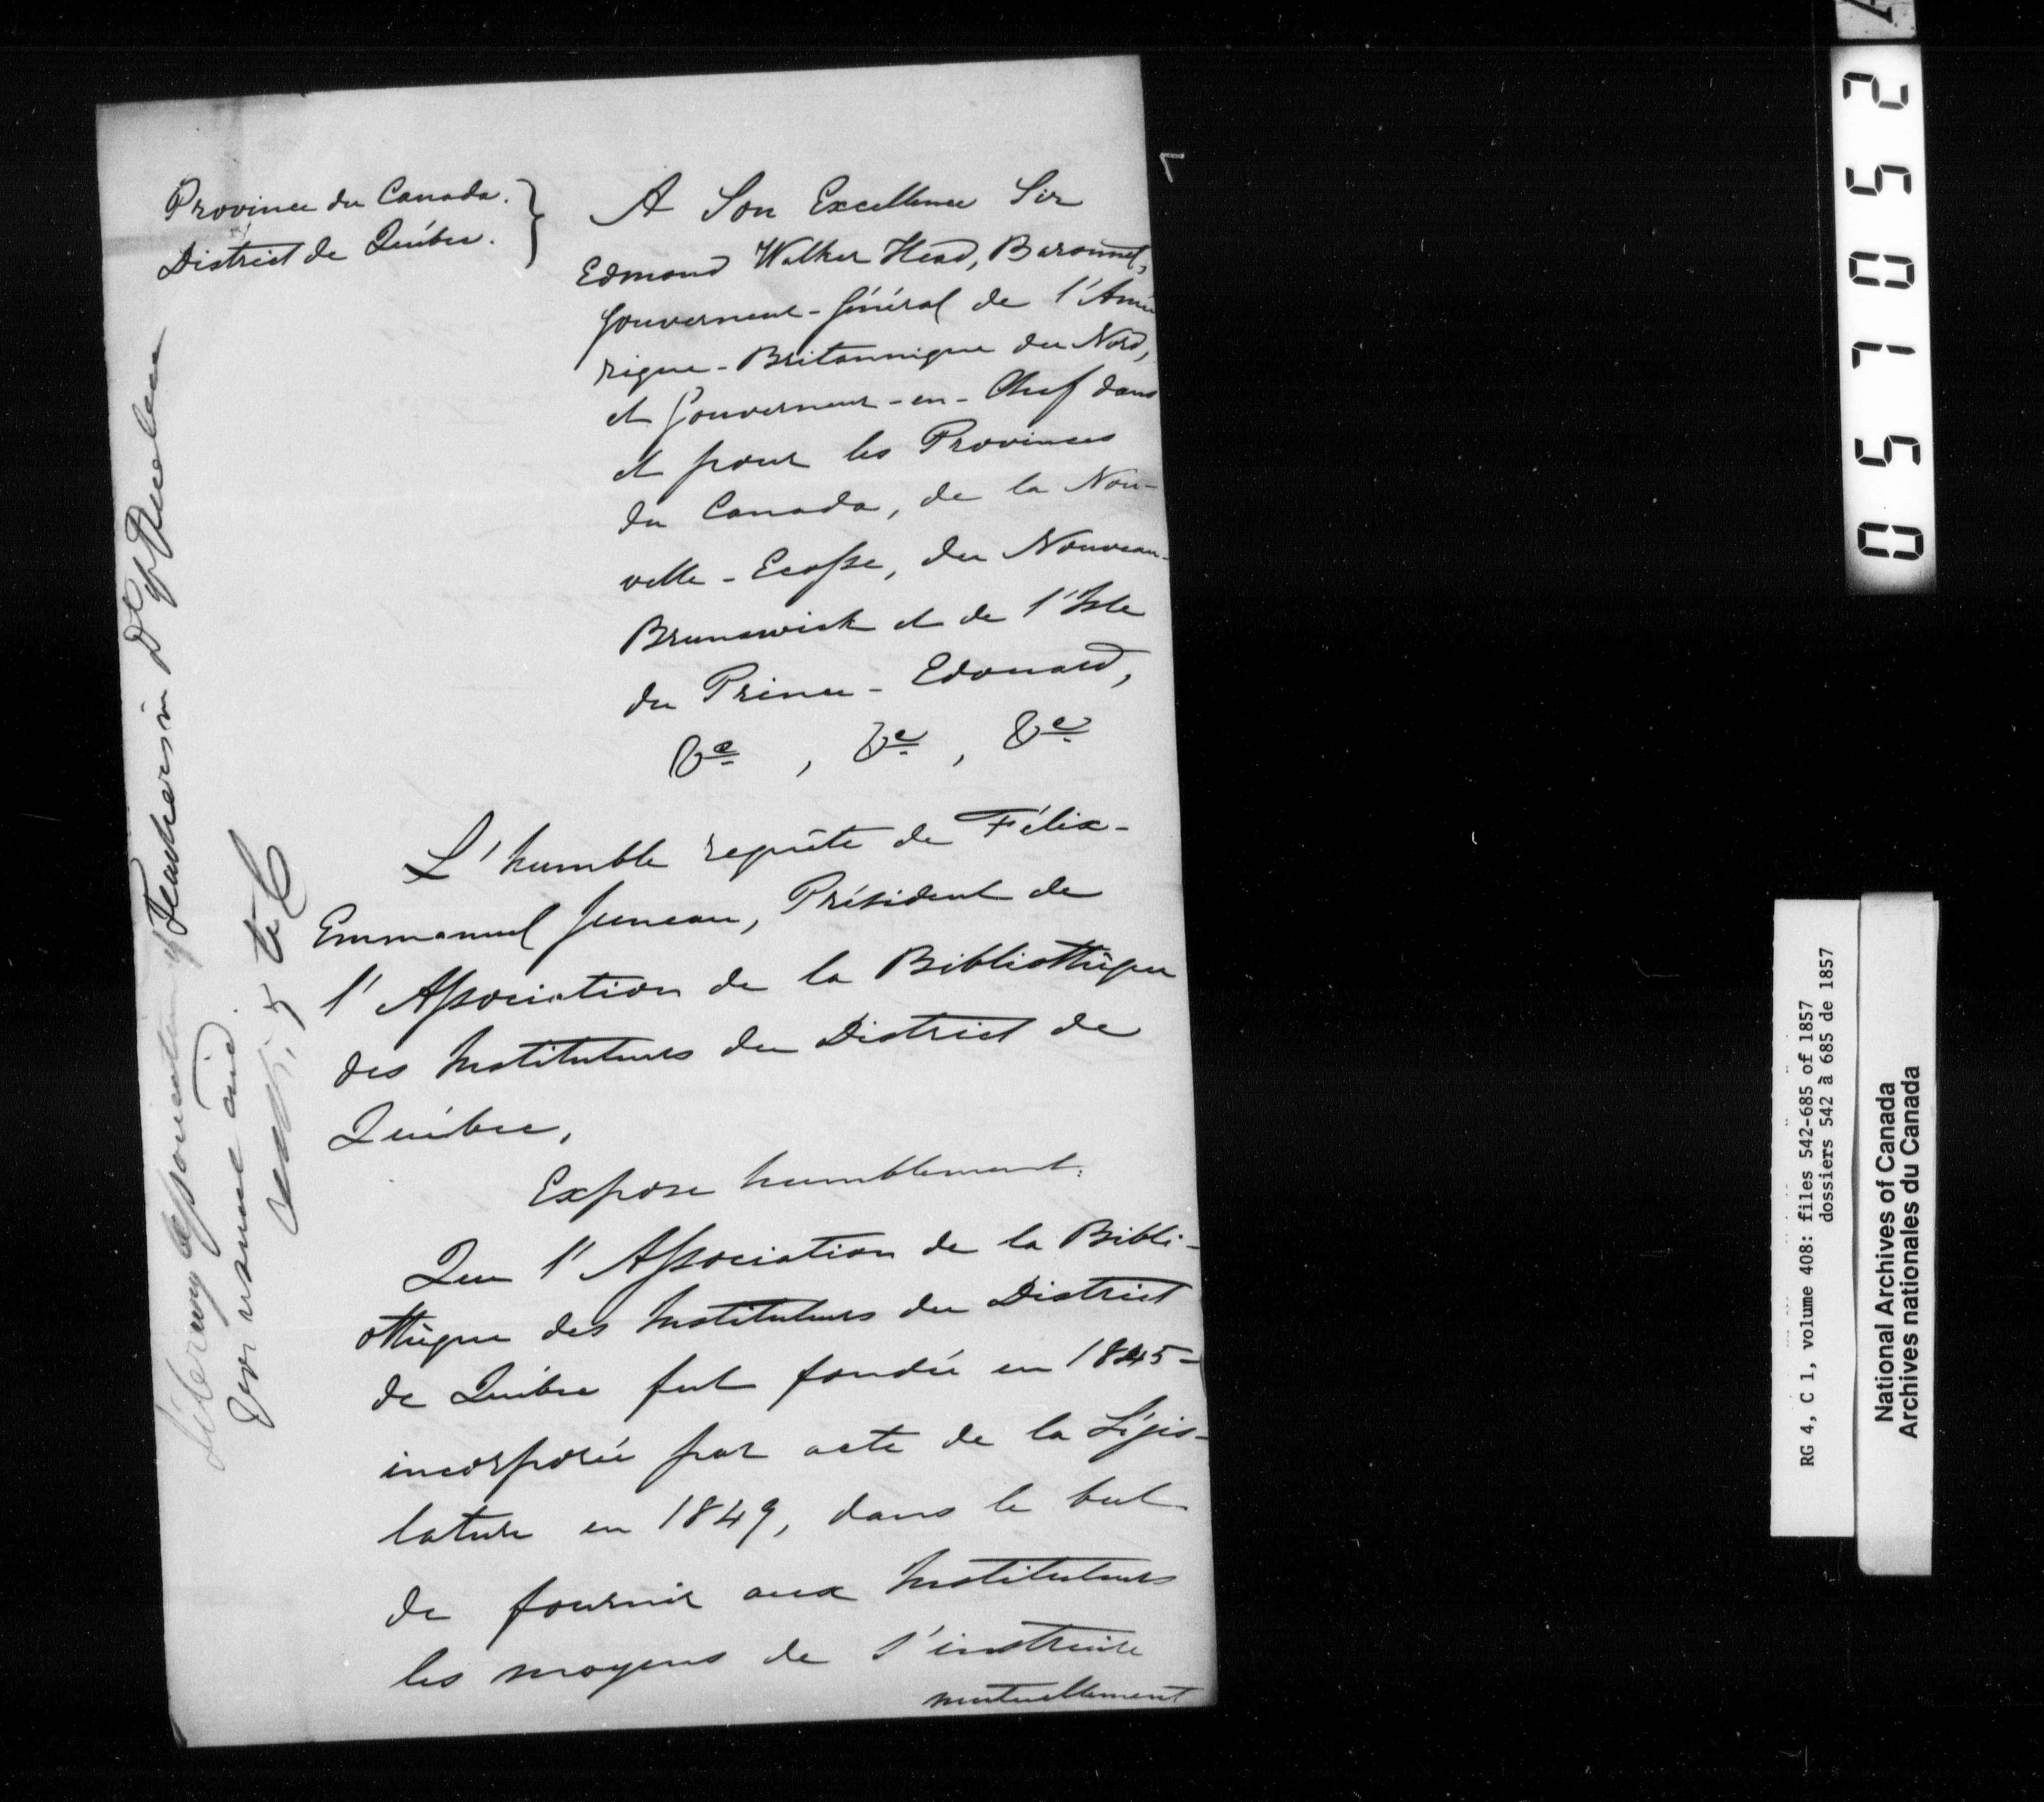 Province du Canada.
District de Québec.
A Son Excellence Sir
Edmond Walker Head, Baronnet,
Gouverneur-Général de l'Amé
rique-Britannique du Nord,
et Gouverneur-en-Chef dans
et pour les Provinces
du Canada, de la Nou-
velle-Ecosse, du Nouveau-
Brunswick et de l'Isle
du Prince-Edouard,
&c, &c, &c
L'humble requête de Félix-
Emmanuel Juneau, Président de
l'Association de la Bibliothèque
des Instituteurs du District de
Québec,
Expose humblement:
Que l'Association de la Bibli-
othèque des Instituteurs du District
de Québec fut fondée en 1845-
incorporée par acte de la Légis-
lature en 1849, dans le but
de fournir aux Instituteurs
les moyens de s'instruire
mutuellement
Literary Association of Teachers in Dt of Quebec
for usual aid
0571052
RG 4, C 1, volume 408: files 542-685 of 1857
dossiers 542 à 685 de 1857
National Archives of Canada
Archives nationales du Canada